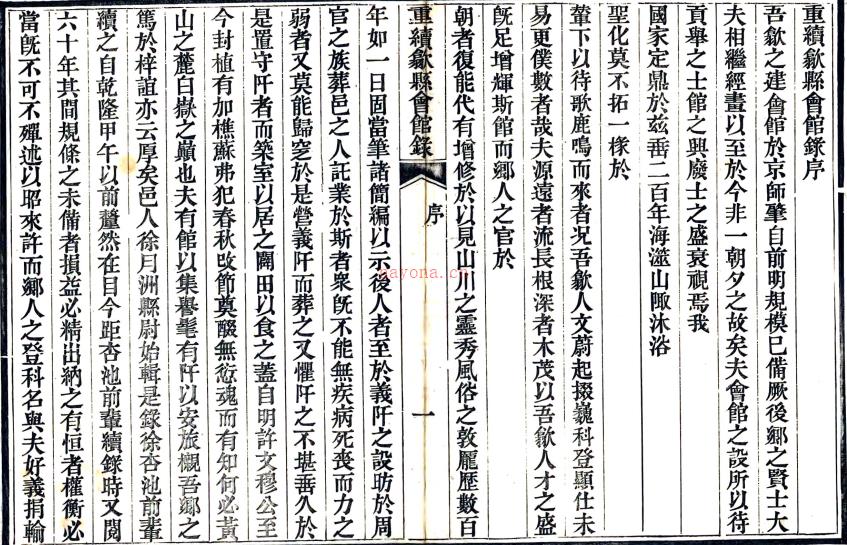 重續歙縣會館錄序
吾歙之建會館於京師肇自前明規模已備厥後鄉之賢士大
夫相繼經畫以至於今非一朝夕之故矣夫會館之設所以待
貢舉之士館之興廢士之盛衰視焉我
國家定鼎於茲垂二百年海澨山陬沐浴
聖化莫不拓一椽於
輦下以待歌鹿鳴而來者況吾歙人文蔚起掇巍科登顯仕未
易更僕數者哉夫源遠者流長根深者木茂以吾歙人才之盛
旣足增輝斯館而鄉人之官於
朝者復能代有增修於以見山川之靈秀風俗之敦龐歷數百
重續歙縣會館錄
序
一
年如一日固當筆諸簡編以示後人者至於義阡之設昉於周
官之族葬邑之人託業於斯者衆旣不能無疾病死喪而力之
弱者又莫能歸窆於是營義阡而葬之又懼阡之不堪垂久於
是置守阡者而築室以居之闢田以食之蓋自明許文穆公至
今封植有加樵蘇弗犯春秋改節奠醊無愆魂而有知何必黃
山之麓白嶽之巔也夫有館以集譽髦有阡以安旅櫬吾鄉之
篤於梓誼亦云厚矣邑人徐月洲縣尉始輯是錄徐杏池前輩
續之自乾隆甲午以前釐然在目今距杏池前輩續錄時又閱
六十年其間規條之未備者損益必精出納之有恒者權衡必
當旣不可不殫述以昭來許而鄉人之登科名與夫好義捐輸
nayona.cn